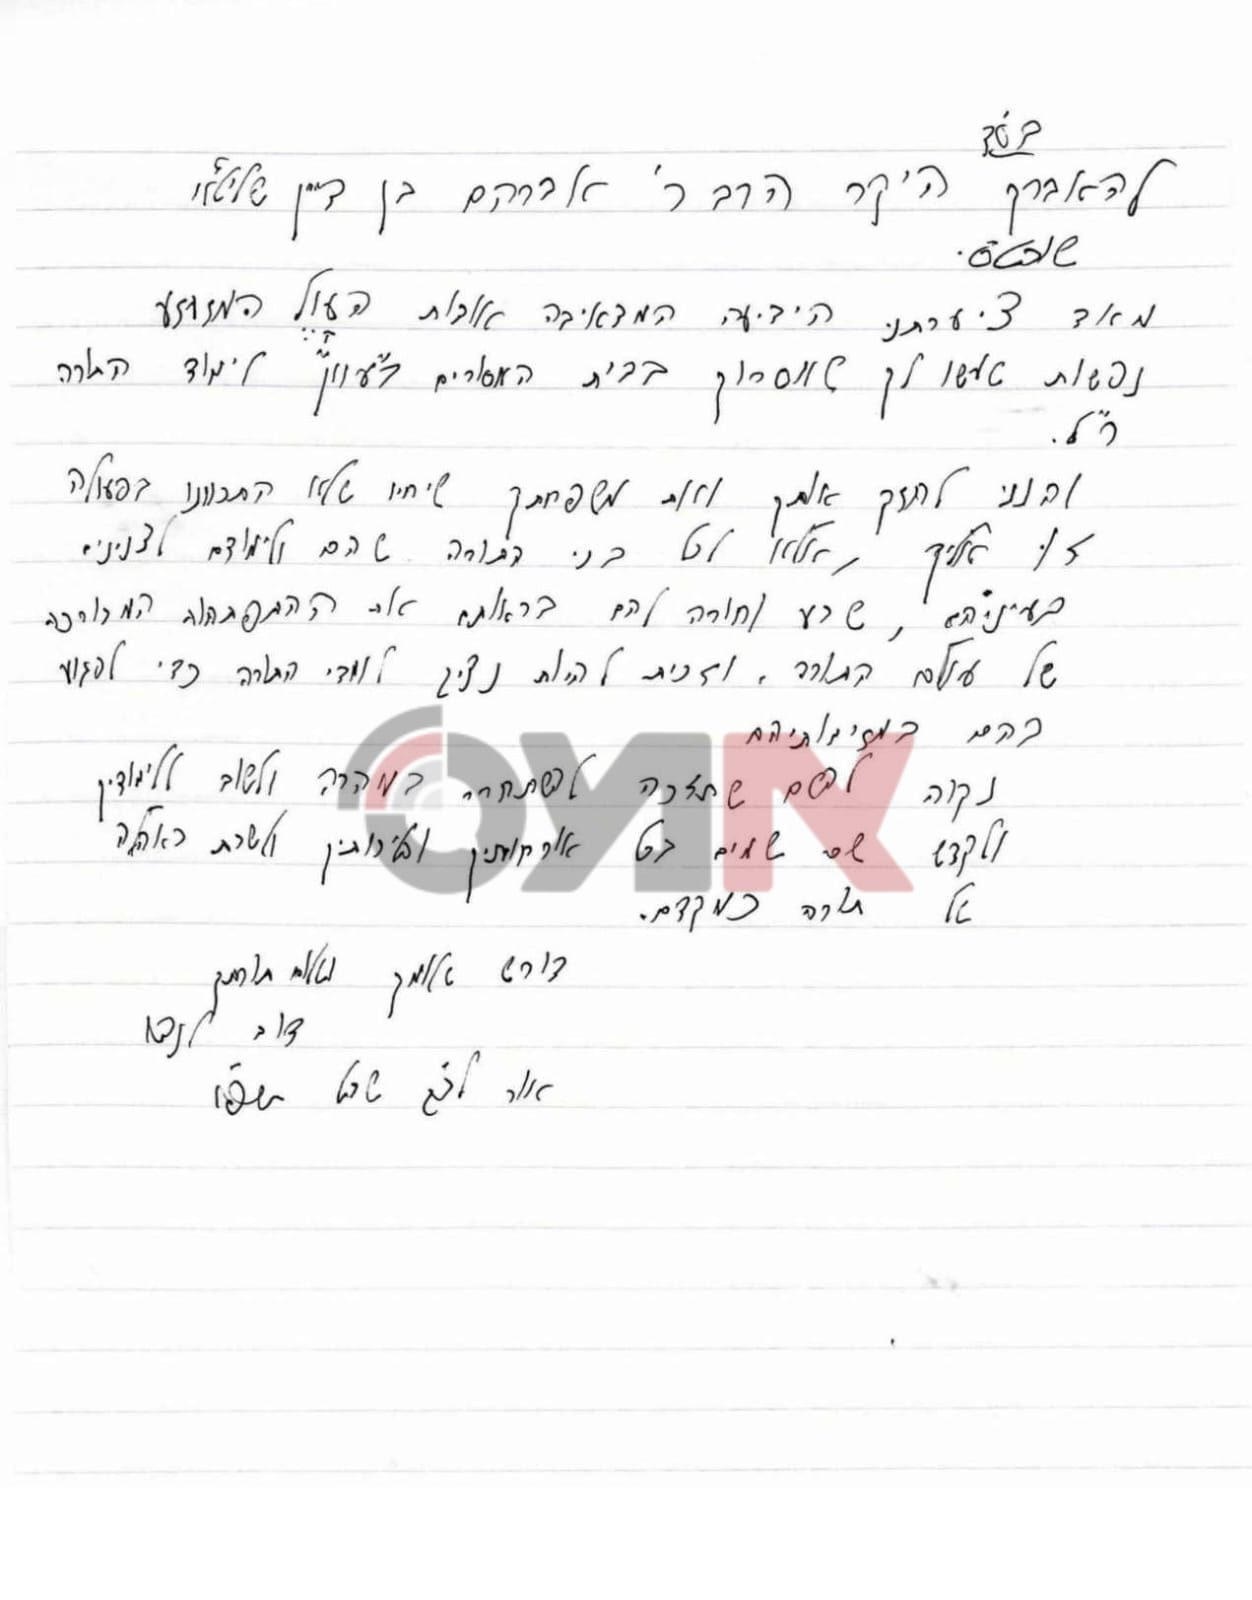 בס"ד
להאברך היקר הרב ר' אברהם בן דיין שליט"א
שוכט"ס.
מאד ציערתני הידיעה המדאיבה אודות העול המזעזע
נפשות שעשו לך שאסרוך בבית האסורים ב"עוון" לימוד התורה
ר"ל.
והנני לחזק אותך ואת משפחתך שיחיו שלא התכוונו בפעולה
זו אליך, אלא לכל בני התורה שהם ולימודם לצנינים
בעיניהם, שרע וחורה להם בראותם את ההתפתחות המבורכה
של עולם התורה, וזכית להיות נציג לומדי התורה כדי לפגוע
בהם במזימותיהם
נקוה להשם שתזכה להשתחרר במהרה ולשוב ללימודיך
ולקדש שם שמים בכל אורחותיך והליכותיך ולשרת באהלה
של תורה כמקדם.
דורש שלומך ושלום תורתך
דוב לנדו
אור לכ"ג שבט תשפ"ו
OMN